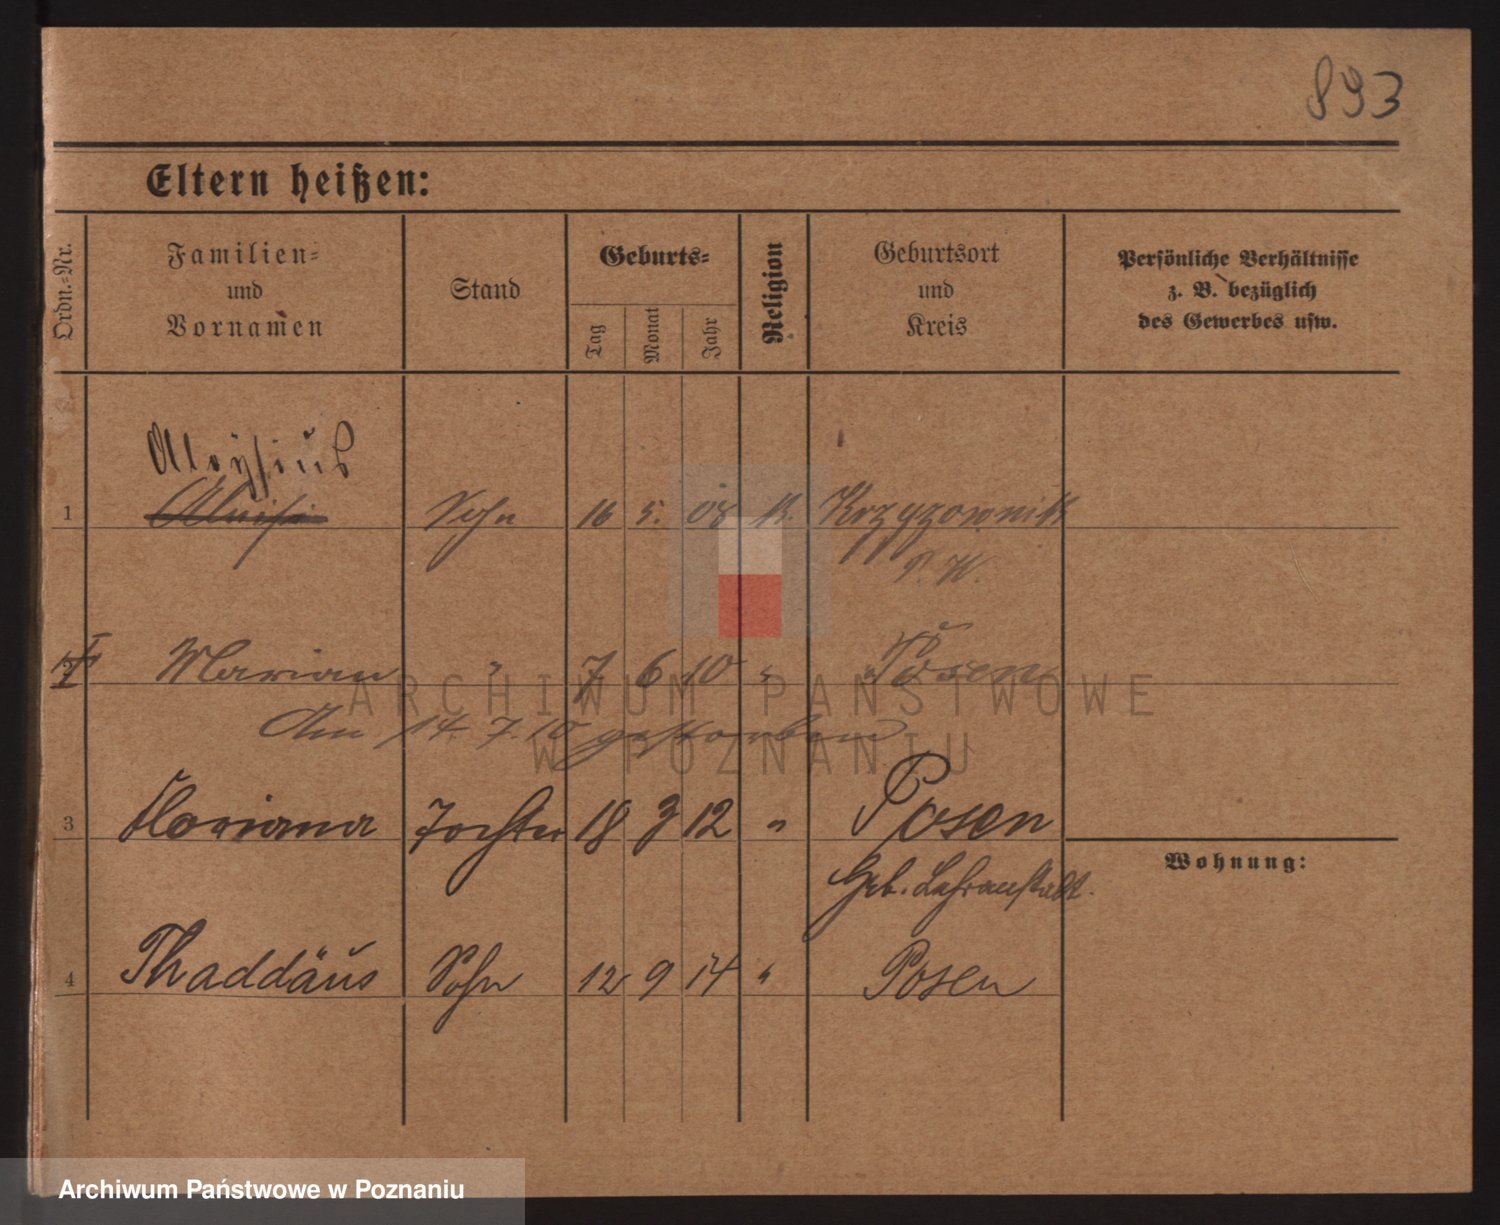 893
Eltern heißen:
Ordn.-Nr.
Familien-
und
Vornamen
Stand
Geburts-
Tag
Monat
Jahr
Religion
Geburtsort
und
Kreis
Persönliche Verhältnisse
z. B. bezüglich
des Gewerbes usw.
Aloÿsius
1 Aloisi Sohn 16 5. 08 K. Krzyzownik
P. W.
2 Marian " 7 6 10 " Posen
Am 14. 7. 10 gestorben
3 Floriana Tochter 18 3 12 " Posen
Wohnung:
Geb. Lehranstalt.
4 Thaddäus Sohn 12 9 14 " Posen
ARCHIWUM PAŃSTWOWE
W POZNANIU
Archiwum Państwowe w Poznaniu